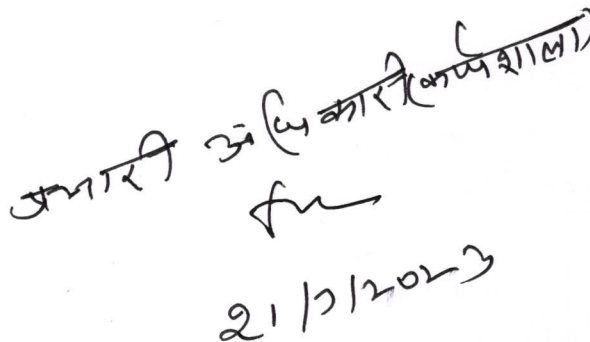 प्रभारी अधिकारी (कार्यशाला)
21/7/2023